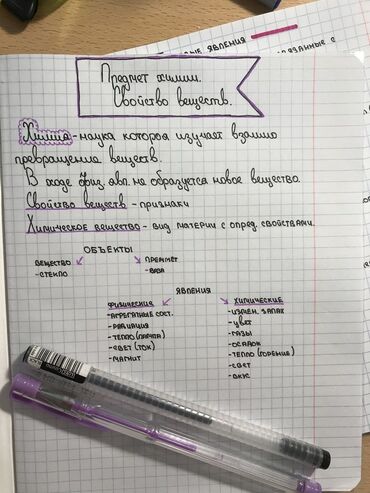 ЯВЛЕНИЯ
Предмет химии.
Свойство веществ.
Химия - наука которая изучает взаимо
превращение веществ.
В ходе физ. явл. не образуется новое вещество.
Свойство веществ - признаки
Химическое вещество - вид материи с опред. свойствами.
ОБЪЕКТЫ
ВЕЩЕСТВО ПРЕДМЕТ
-СТЕКЛО -ВАЗА
ЯВЛЕНИЯ
ФИЗИЧЕСКИЕ ХИМИЧЕСКИЕ
-АГРЕГАТНЫЕ СОСТ. -ИЗМЕН. ЗАПАХ
-РАДИАЦИЯ -ЦВЕТ
-ТЕПЛО (ЛАМПА) -ГАЗЫ
-СВЕТ (ТОК) -ОСАДОК
-МАГНИТ -ТЕПЛО (ГОРЕНИЕ)
-СВЕТ
-ВКУС